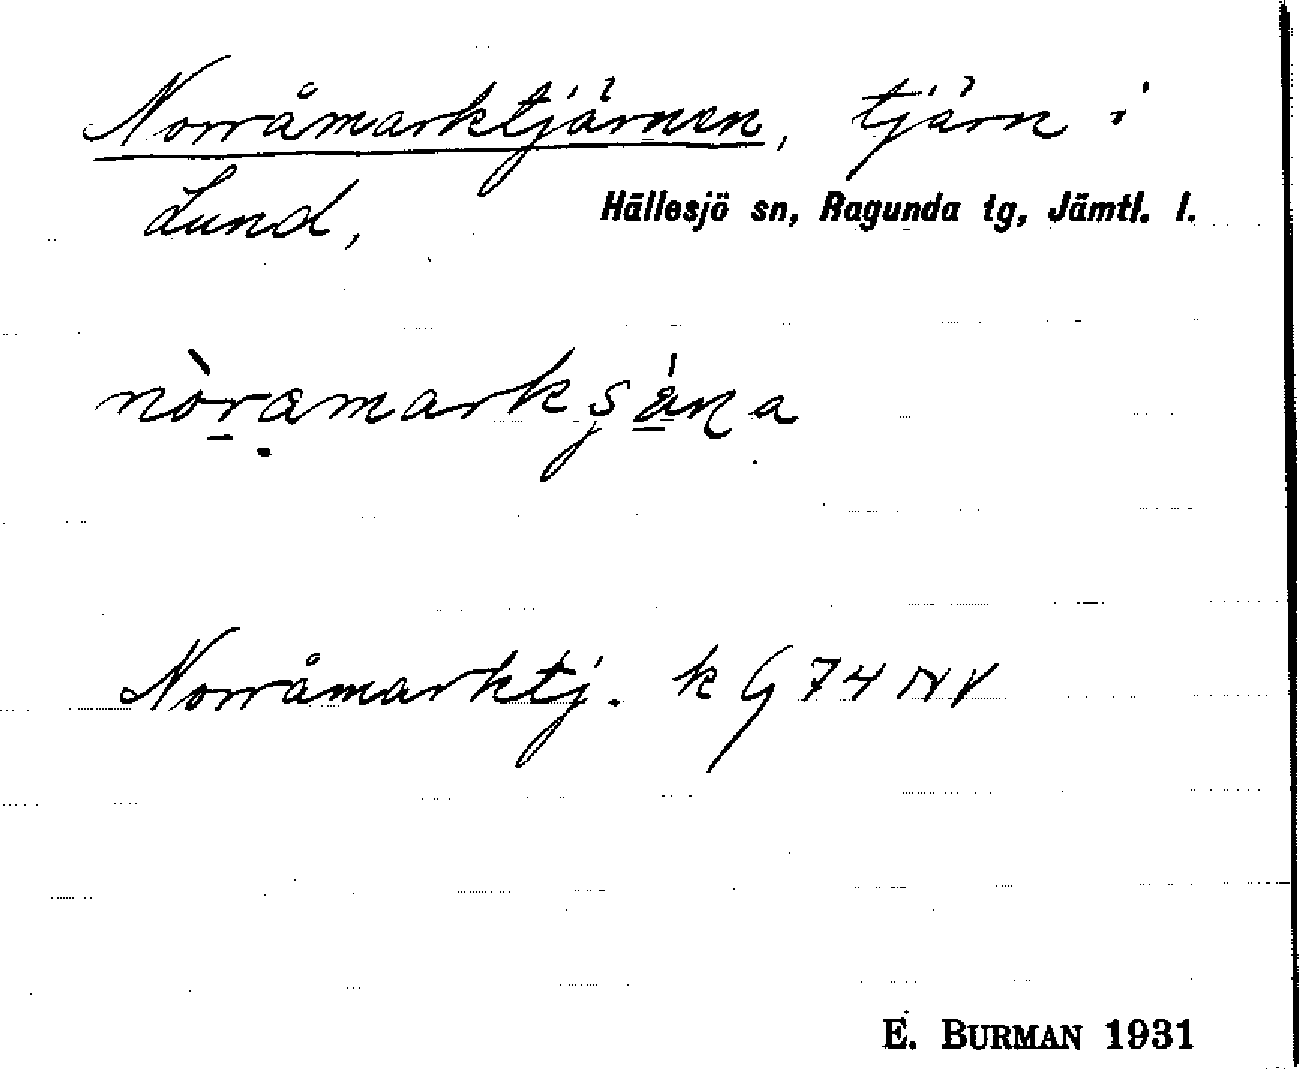 Norråmarktjärnen, tjärn i
Lund, Hällesjö sn, Ragunda tg, Jämtl. l.
Norråmarktj. k G 74 NV
E. BURMAN 1931